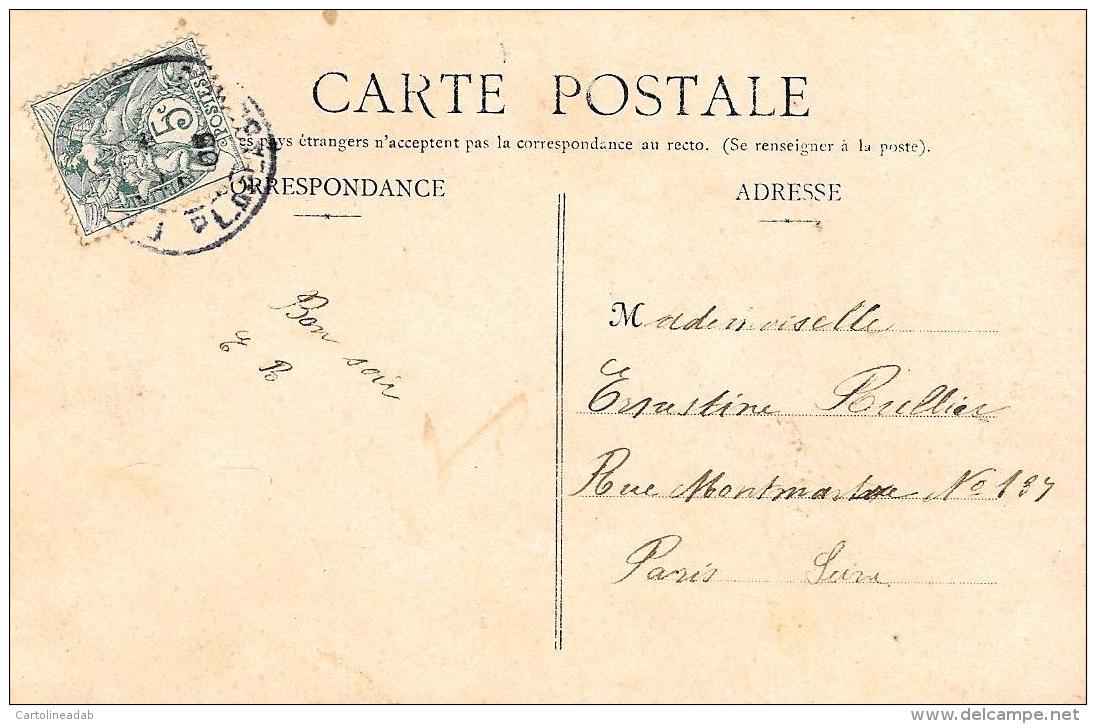 CARTE POSTALE
es pays étrangers n'acceptent pas la correspondance au recto. (Se renseigner à la poste).
ORRESPONDANCE
ADRESSE
5c
POSTES
Bon soir
E B
Mademoiselle
Ernestine Rullier
Rue Montmartre No 137
Paris Seine
Cartolineadab
www.delcampe.net